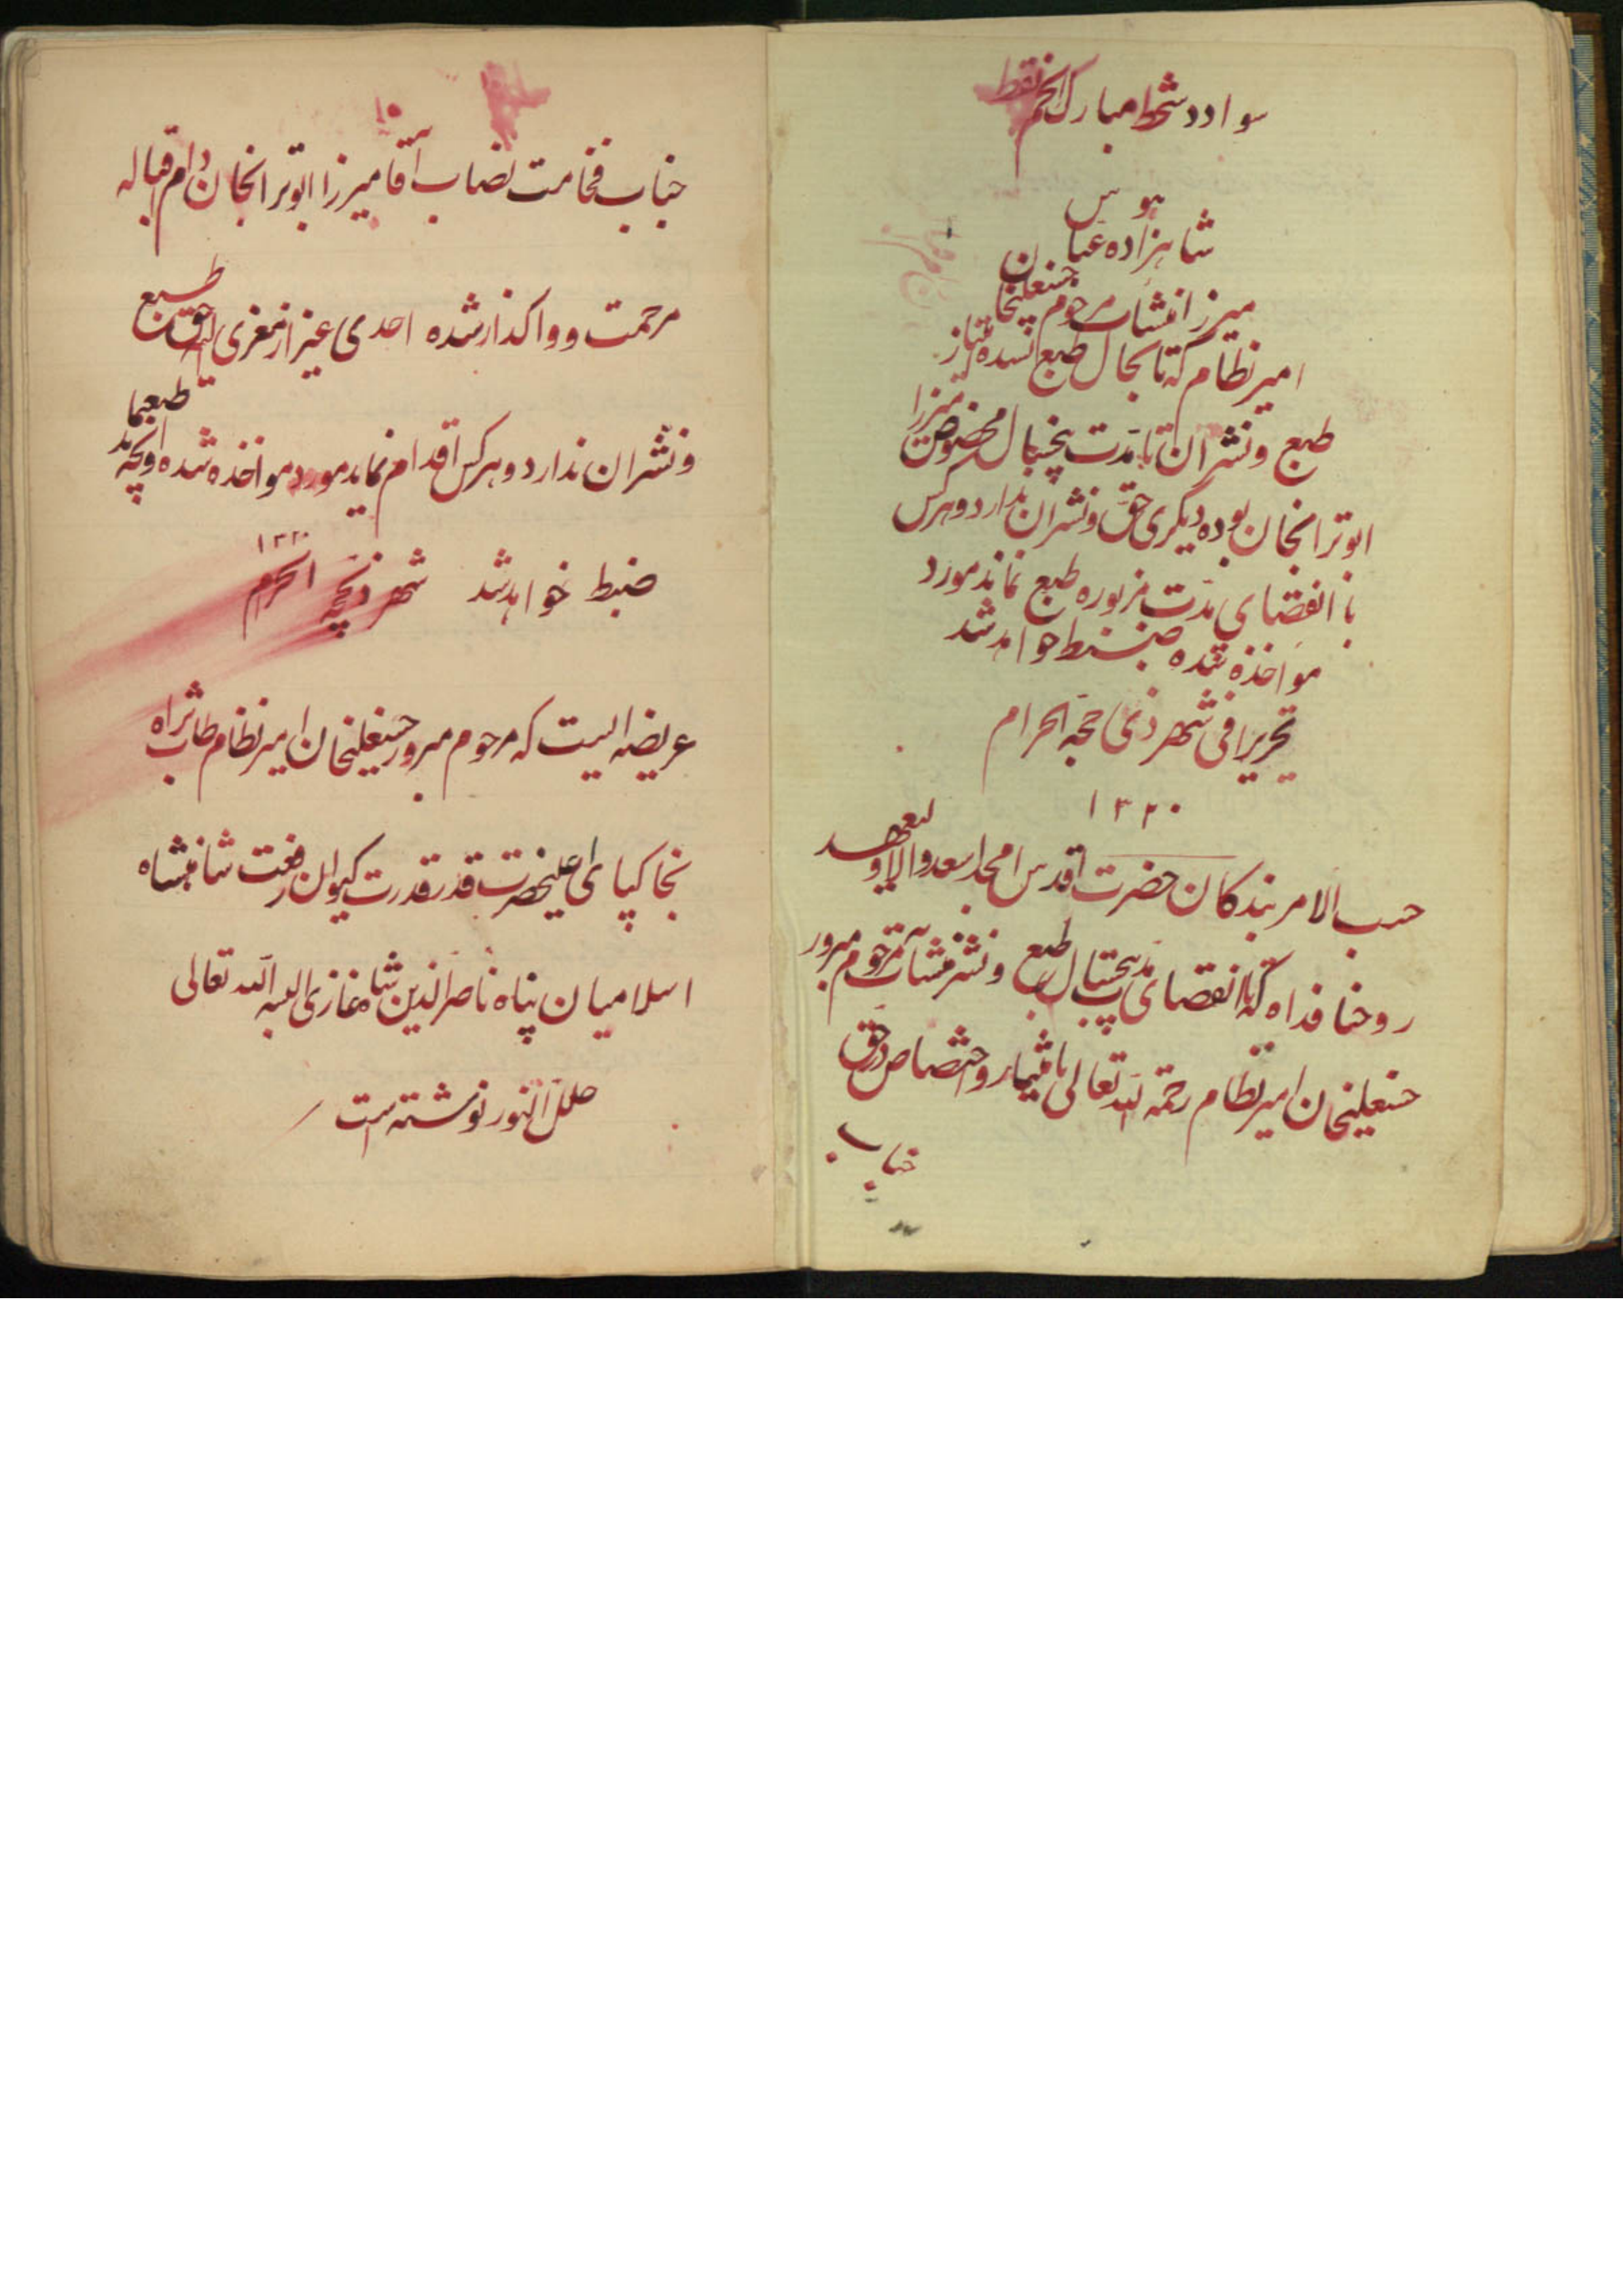 سواد دستخط مبارک
هو
شاهزاده عباس
میرزا منشآت مرحوم حسنعلیخان
امیرنظام که تا بحال طبع نشده امتیاز
طبع و نشر ان تا مدت پنجسال مخصوص میرزا
ابوترابخان بوده دیگری حق و نشر ان ندارد و هرکس
با انقضای مدت مزبوره طبع نماند مورد
مواخذه شده ضبط خواهد شد
تحریرا فی شهر ذی حجه الحرام
۱۳۲۰
حسب الامر بندکان حضرت اقدس امجد اسعد والا ولیعهد
روحنا فداه که تا انقضای مدت پنجسال طبع و نشر منشآت مرحوم مبرور
حسنعلیخان امیرنظام رحمة الله تعالی بامتیاز و اختصاص در حق
جناب
جناب فخامت نصاب آقا میرزا ابوترابخان دام اقباله
مرحمت و واکذار شده احدی غیر از معزی الیه حق طبع
و نشر ان ندارد و هرکس اقدام نماید مورد مواخذه شده و انچه طبع نماید
ضبط خواهد شد شهر ذیحجه الحرام ۱۳۲۰
عریضه ایست که مرحوم مبرور حسنعلیخان امیرنظام طاب ثراه
بخاکپای اعلیحضرت قدر قدرت کیوان رفعت شاهنشاه
اسلامیان پناه ناصرالدین شاه غازی البسه الله تعالی
حلل النور نوشته است